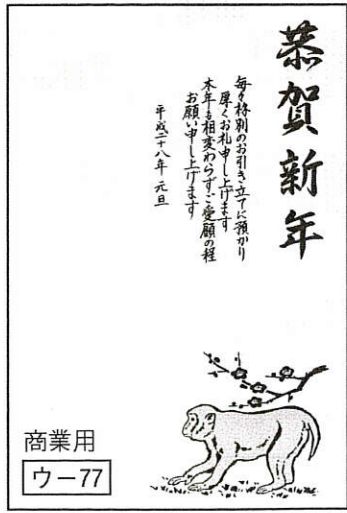 恭賀新年
毎々格別のお引き立てに預かり
厚くお礼申し上げます
本年も相変わらずご愛顧の程
お願い申し上げます
平成二十八年 元旦
商業用
ウー77